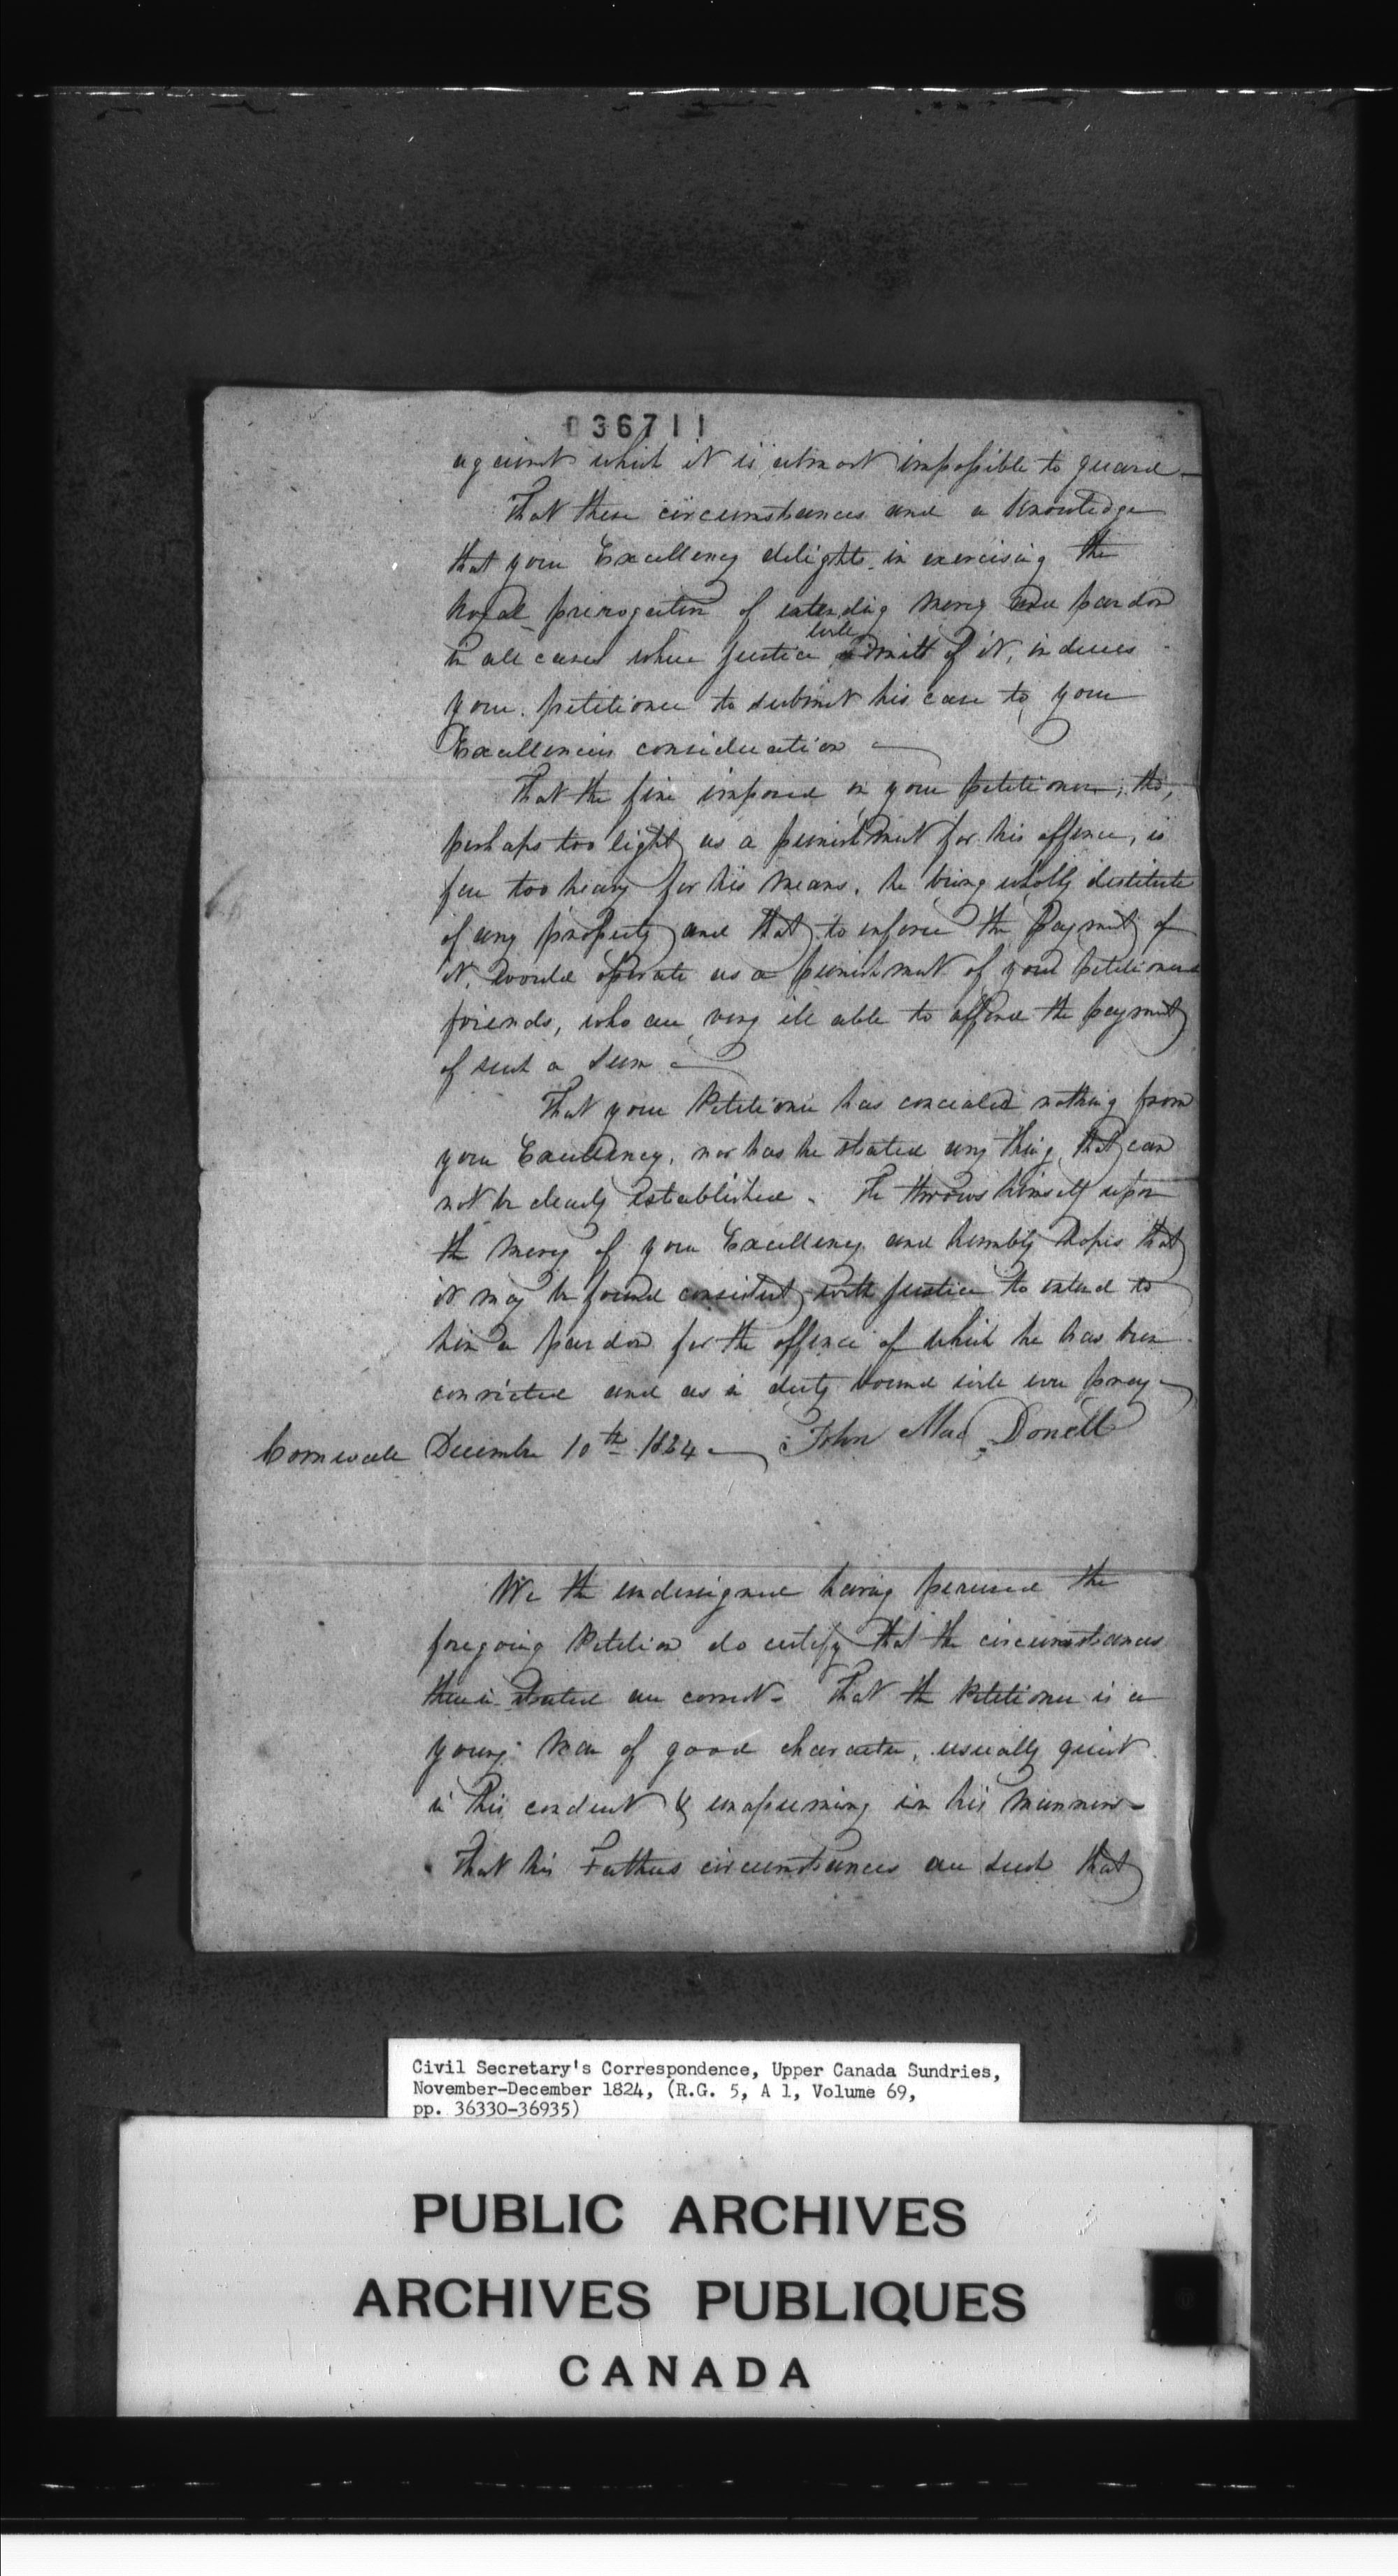 036711
against which it is almost impossible to guard —
That these circumstances and a knowledge
that your Excellency delights in exercising the
Royal prerogative of extending mercy and pardon
will
in all cases where justice admitt of it, induces
your petitioner to submit his case to your
Excellencies consideration —
That the fine imposed on your petitioner, tho,
perhaps too light as a punishment for his offence, is
far too heavy for his means, he being wholly destitute
of any property and that to inforce the payment of
it, would operate as a punishment of your petitioners
friends, who are very ill able to afford the payment
of such a sum —
That your Petitioner has concealed nothing from
your Excellency, nor has he stated any thing that can
not be clearly established. He throws himself upon
the mercy of your Excellency and humbly hopes that
it may be found consistent with justice to extend to
him a pardon for the offence of which he has been
convicted and as in duty bound will ever pray —
Cornwall December 10th 1824 — John Mac Donell
We the undersigned having perused the
foregoing Petition do certify that the circumstances
therein stated are correct - That the Petitioner is a
young man of good character, usually quiet
in his conduct & unassuming in his manners -
That his Fathers circumstances are such that
Civil Secretary's Correspondence, Upper Canada Sundries,
November-December 1824, (R.G. 5, A 1, Volume 69,
pp. 36330-36935)
PUBLIC ARCHIVES
ARCHIVES PUBLIQUES
CANADA